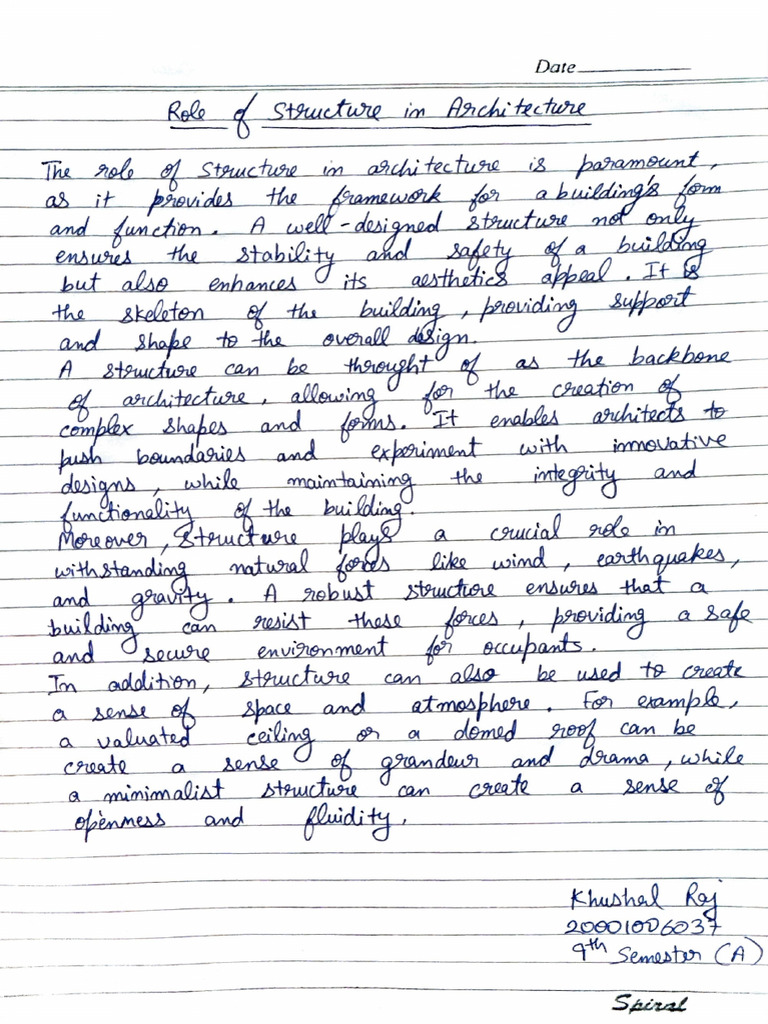 Date
Role of Structure in Architecture
The role of structure in architecture is paramount,
as it provides the framework for a building's form
and function. A well-designed structure not only
ensures the stability and safety of a building
but also enhances its aesthetics appeal. It is
the skeleton of the building, providing support
and shape to the overall design.
A structure can be throught of as the backbone
of architecture, allowing for the creation of
complex shapes and forms. It enables architects to
push boundaries and experiment with innovative
designs, while maintaining the integrity and
functionality of the building.
Moreover, structure plays a crucial role in
withstanding natural forces like wind, earthquakes,
and gravity. A robust structure ensures that a
building can resist these forces, providing a safe
and secure environment for occupants.
In addition, structure can also be used to create
a sense of space and atmosphere. For example,
a valuated ceiling or a domed roof can be
create a sense of grandeur and drama, while
a minimalist structure can create a sense of
openness and fluidity.
Khushal Raj
20001006037
9th Semester (A)
Spiral